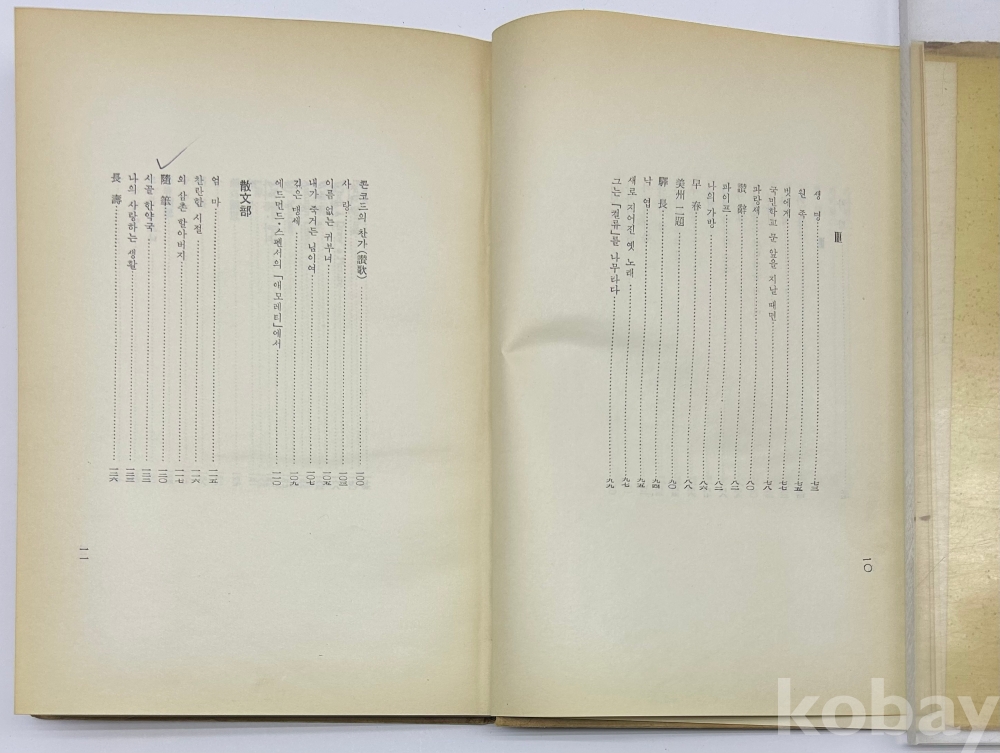 Ⅲ
생 명 七三
원 족 七五
벗에게 七七
국민학교 문 앞을 지날 때면 七八
파랑새 八〇
讃 辭 八一
파이프 八二
나의 가방 八六
早 春 八八
美州二題 九〇
驛 長 九四
낙 엽 九五
새로 지어진 옛 노래 九七
그는 「결류」를 나무라다 九九
一〇
콘코드의 찬가(讃歌) 一〇〇
사 랑 一〇三
이름 없는 귀부녀 一〇五
내가 죽거든 님이여 一〇七
깊은 맹세 一〇九
에드먼드·스펜서의 「애모레티」에서 一一〇
散文部
엄 마 一一五
찬란한 시절 一一六
외 삼촌 할아버지 一一七
隨 筆 一二〇
시골 한약국 一二二
나의 사랑하는 생활 一二三
長 壽 一二六
一一
kobay